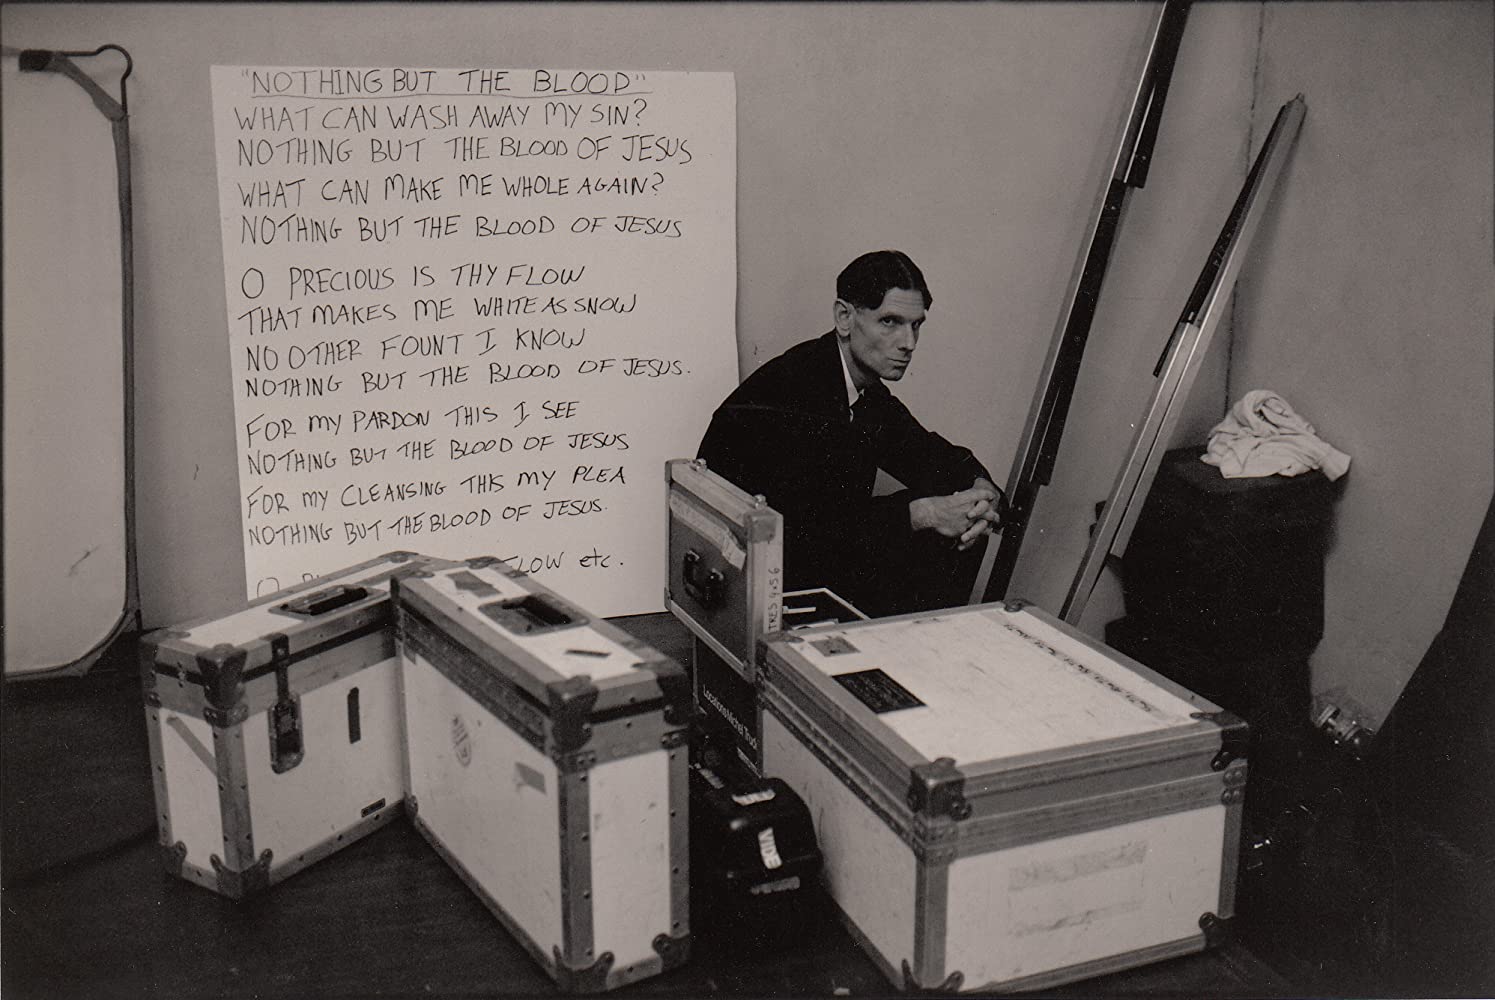 "NOTHING BUT THE BLOOD"
WHAT CAN WASH AWAY MY SIN?
NOTHING BUT THE BLOOD OF JESUS
WHAT CAN MAKE ME WHOLE AGAIN?
NOTHING BUT THE BLOOD OF JESUS
O PRECIOUS IS THY FLOW
THAT MAKES ME WHITE AS SNOW
NO OTHER FOUNT I KNOW
NOTHING BUT THE BLOOD OF JESUS.
FOR MY PARDON THIS I SEE
NOTHING BUT THE BLOOD OF JESUS
FOR MY CLEANSING THIS MY PLEA
NOTHING BUT THE BLOOD OF JESUS.
O FLOW etc.
TRES 4x5 6